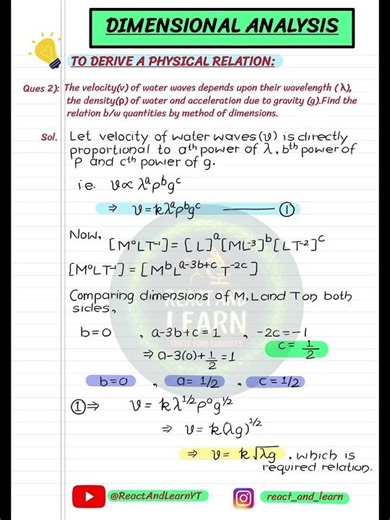 DIMENSIONAL ANALYSIS
TO DERIVE A PHYSICAL RELATION:
Ques 2): The velocity(v) of water waves depends upon their wavelength (λ),
the density(ρ) of water and acceleration due to gravity (g). Find the
relation b/w quantities by method of dimensions.
Sol. Let velocity of water waves(v) is directly
proportional to aᵗʰ power of λ, bᵗʰ power of
ρ and cᵗʰ power of g.
i.e. v ∝ λᵃρᵇgᶜ
⇒ v = kλᵃρᵇgᶜ ——— ①
Now,
[M⁰LT⁻¹] = [L]ᵃ[ML⁻³]ᵇ[LT⁻²]ᶜ
[M⁰LT⁻¹] = [Mᵇ Lᵃ⁻³ᵇ⁺ᶜ T⁻²ᶜ]
Comparing dimensions of M, L and T on both
sides,
b=0 , a-3b+c = 1 , -2c = -1
⇒ a-3(0)+1/2 = 1 c = 1/2
b=0 , a = 1/2 , c = 1/2
① ⇒ v = k λ^1/2 ρ⁰ g^1/2
⇒ v = k(λg)^1/2
⇒ v = k√λg , which is
required relation.
REACT AND
LEARN
@ReactAndLearnYT react_and_learn